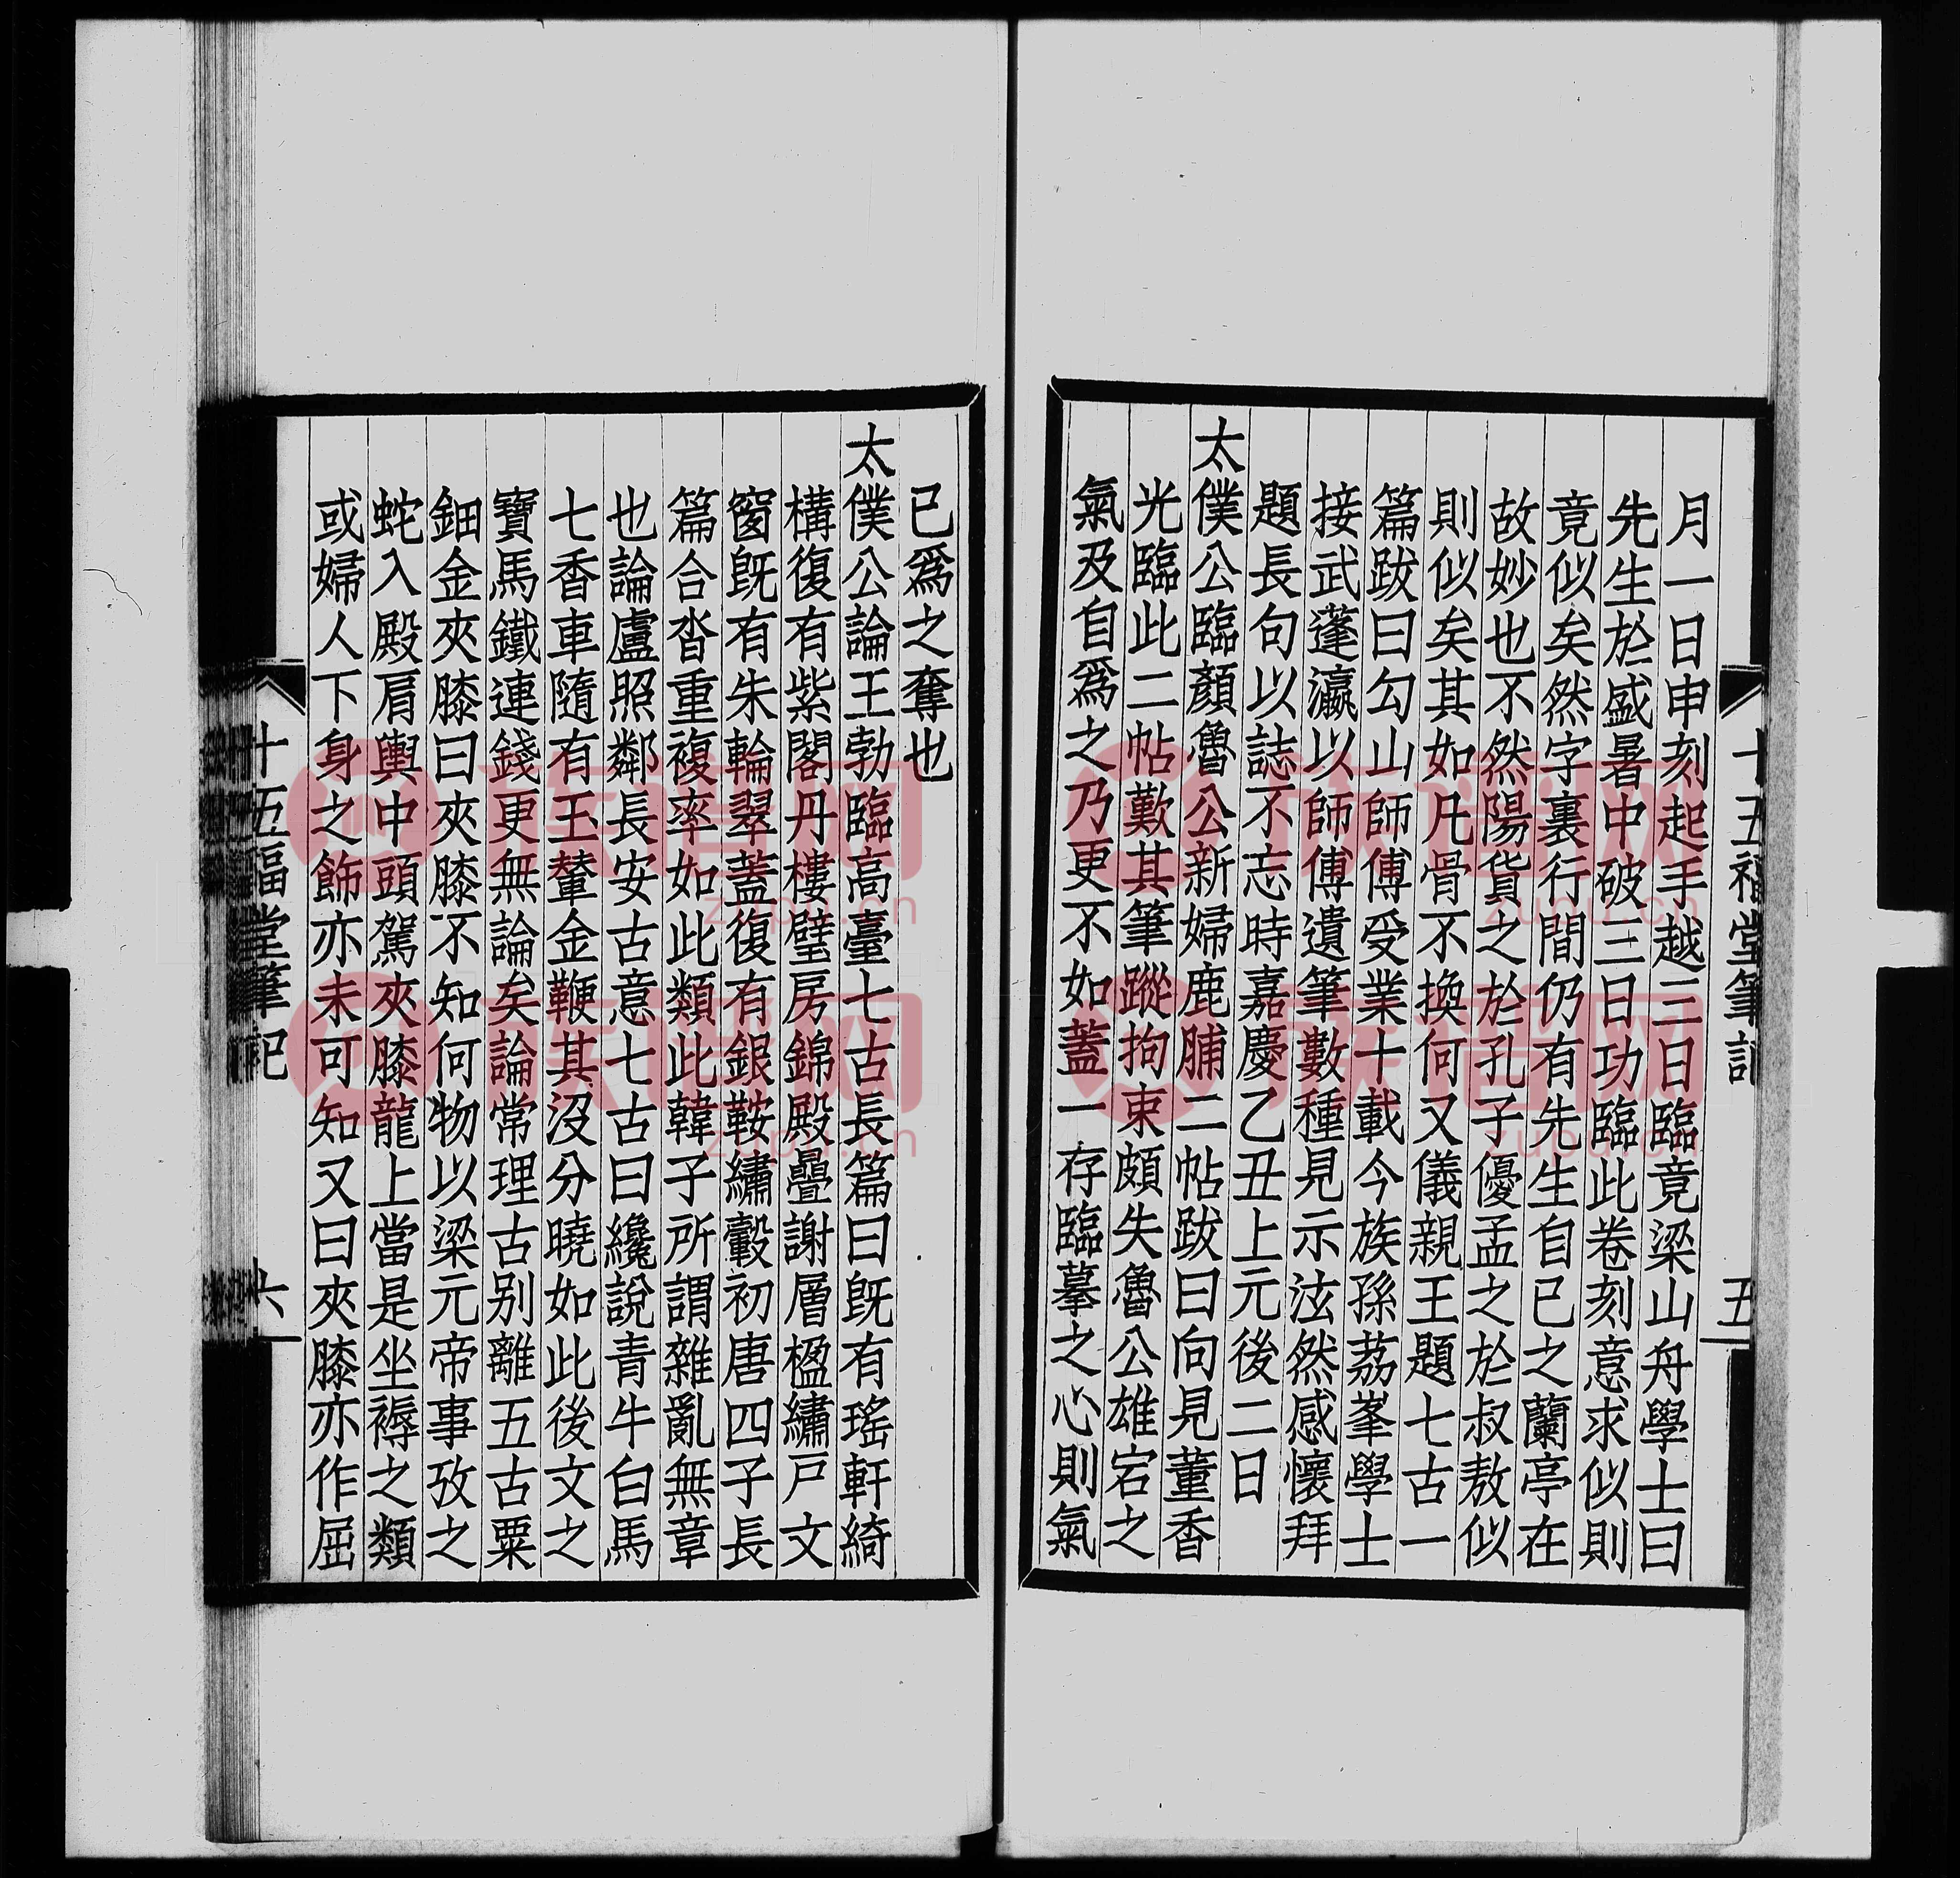 十五福堂筆記
五
月一日申刻起手越二日臨竟梁山舟學士曰
先生於盛暑中破三日功臨此卷刻意求似則
竟似矣然字裏行間仍有先生自已之蘭亭在
故妙也不然陽貨之於孔子優孟之於叔敖似
則似矣其如凡骨不換何又儀親王題七古一
篇跋曰勾山師傅受業十載今族孫荔峯學士
接武蓬瀛以師傅遺筆數種見示泫然感懷拜
題長句以誌不忘時嘉慶乙丑上元後二日
太僕公臨顏魯公新婦鹿脯二帖跋曰向見董香
光臨此二帖歎其筆蹤拘束頗失魯公雄宕之
氣及自爲之乃更不如蓋一存臨摹之心則氣
已爲之奪也
太僕公論王勃臨高臺七古長篇曰旣有瑤軒綺
構復有紫閣丹樓璧房錦殿疊謝層楹繡戸文
窗旣有朱輪翠蓋復有銀鞍繡轂初唐四子長
篇合沓重複率如此類此韓子所謂雜亂無章
也論盧照鄰長安古意七古曰纔說青牛白馬
七香車隨有玉輦金鞭其沒分曉如此後文之
寶馬鐵連錢更無論矣論常理古别離五古粟
鈿金夾膝曰夾膝不知何物以梁元帝事攷之
蛇入殿肩輿中頭駕夾膝龍上當是坐褥之類
或婦人下身之飾亦未可知又曰夾膝亦作屈
十五福堂筆記
六
族谱网
zupu.cn
族谱网
zupu.cn
族谱网
zupu.cn
族谱网
zupu.cn